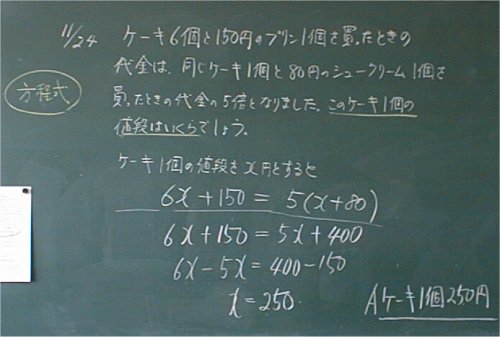 11/24 ケーキ6個と150円のプリン1個を買ったときの
代金は、同じケーキ1個と80円のシュークリーム1個を
方程式
買ったときの代金の5倍となりました。このケーキ1個の
値段はいくらでしょう。
ケーキ1個の値段をx円とすると
6x+150=5(x+80)
6x+150=5x+400
6x-5x=400-150
x=250.
Aケーキ1個250円